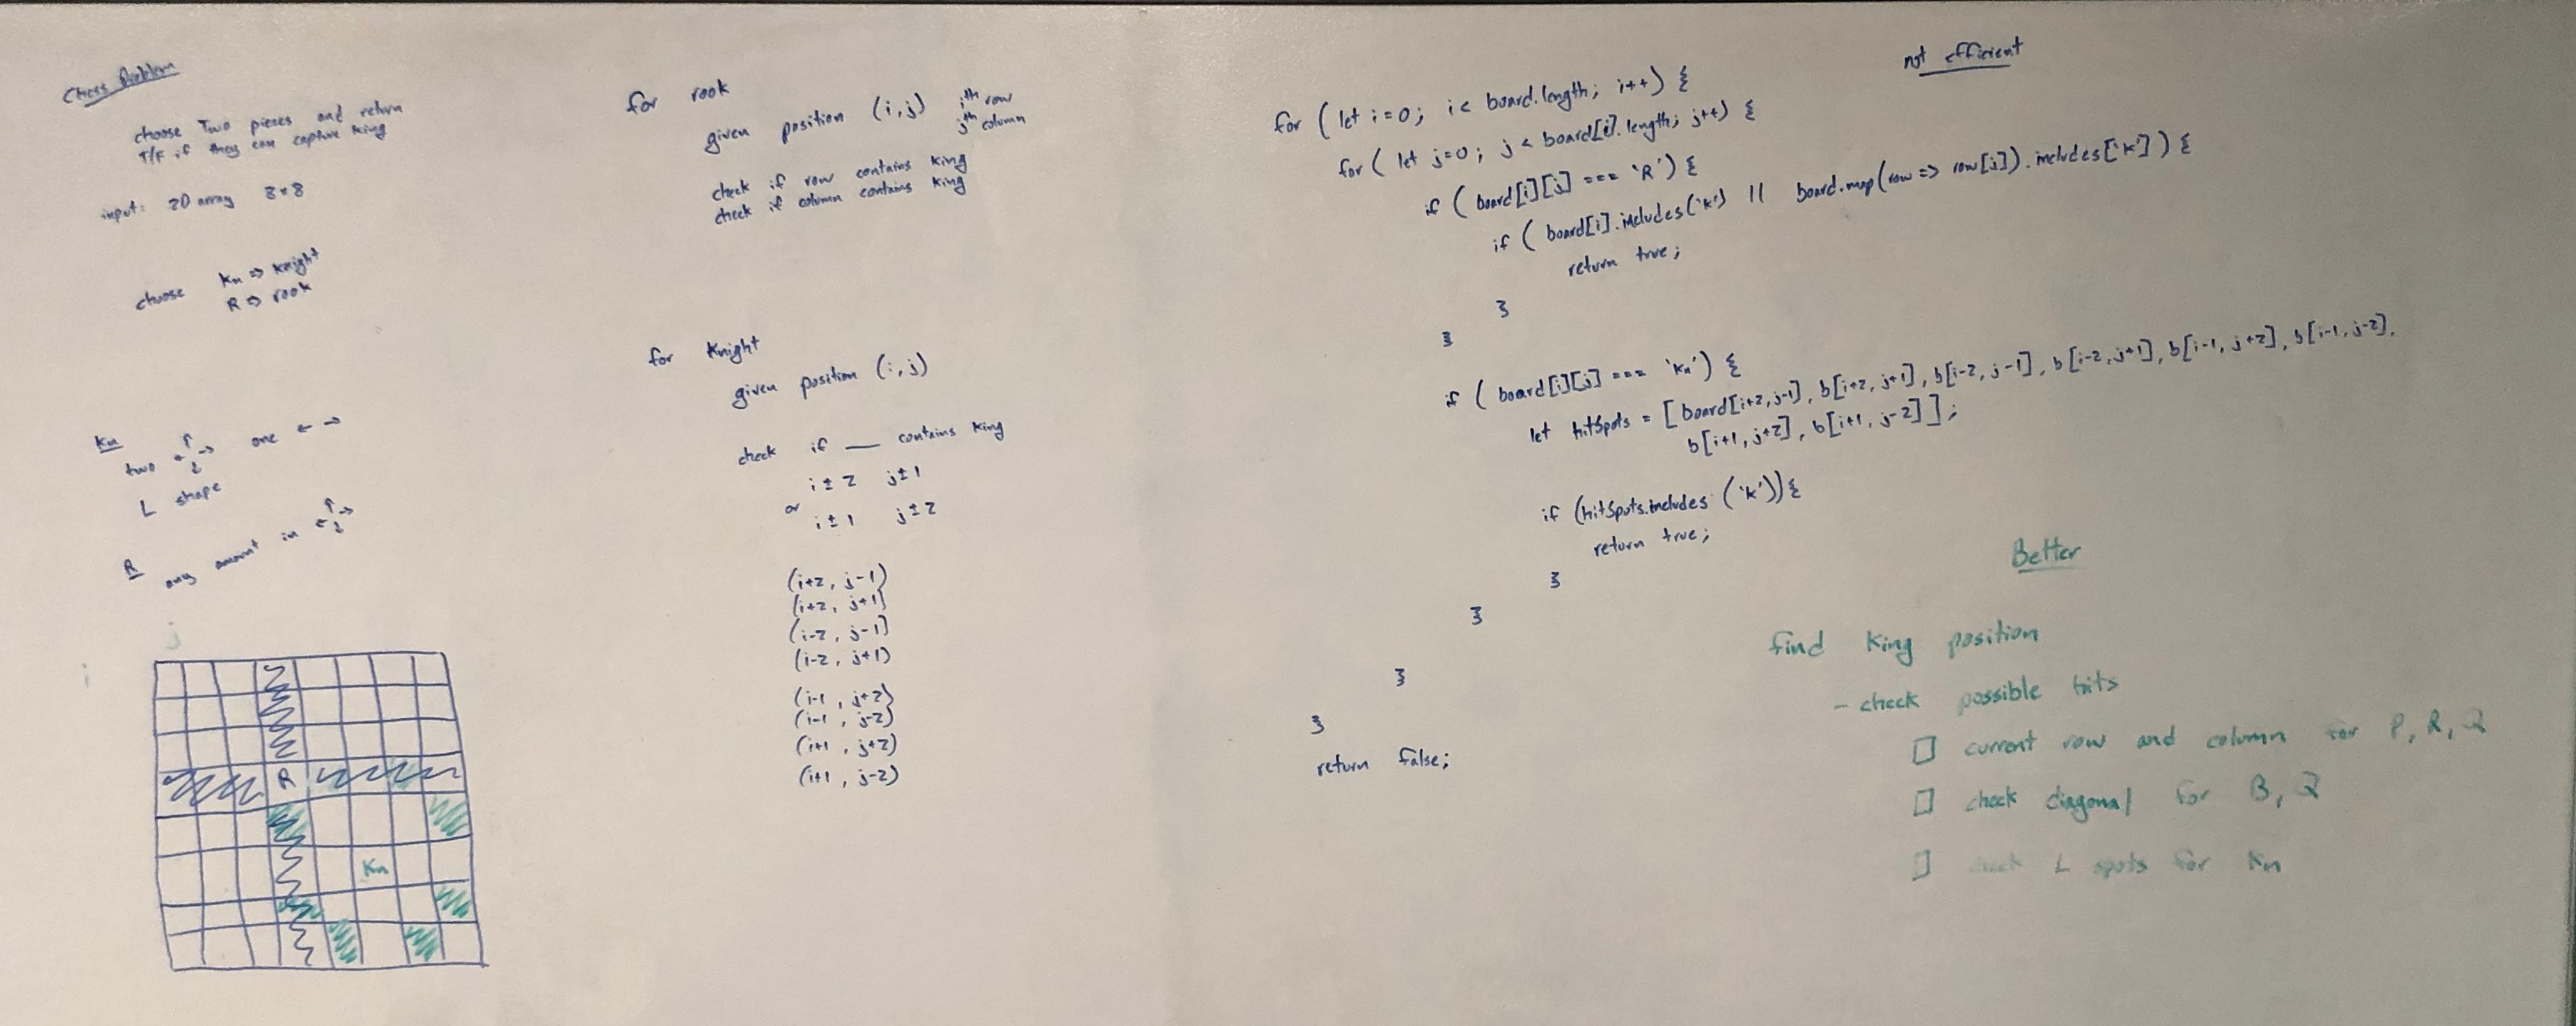 Chess Problem
choose Two pieces and return
T/F if they can capture king
input: 2D array 8*8
choose Kn => Knight
R => rook
Kn
two ← ↑ ↓ → one ← →
L shape
R
any amount in ← ↑ ↓ →
j
i
R
Kn
for rook
given position (i,j) ith row
jth column
check if row contains king
check if column contains king
for Knight
given position (i,j)
check if ___ contains King
i ± 2 j ± 1
or
i ± 1 j ± 2
(i+2, j-1)
(i+2, j+1)
(i-2, j-1)
(i-2, j+1)
(i-1, j+2)
(i-1, j-2)
(i+1, j+2)
(i+1, j-2)
not efficient
for (let i=0; i< board.length; i++) {
for ( let j=0; j < board[i].length; j++) {
if (board[i][j] === 'R') {
if ( board[i].includes('K') || board.map(row => row[j]).includes['K']) {
return true;
}
}
if ( board[i][j] === 'Kn') {
let hitSpots = [board[i+2,j-1], b[i+2, j+1], b[i-2, j-1], b[i-2, j+1], b[i-1, j+2], b[i-1, j-2],
b[i+1, j+2], b[i+1, j-2]];
if (hitSpots.includes ('K')) {
return true;
}
}
}
}
return false;
Better
find King position
- check possible hits
□ current row and column for P, R, Q
□ check diagonal for B, Q
□ check L spots for Kn